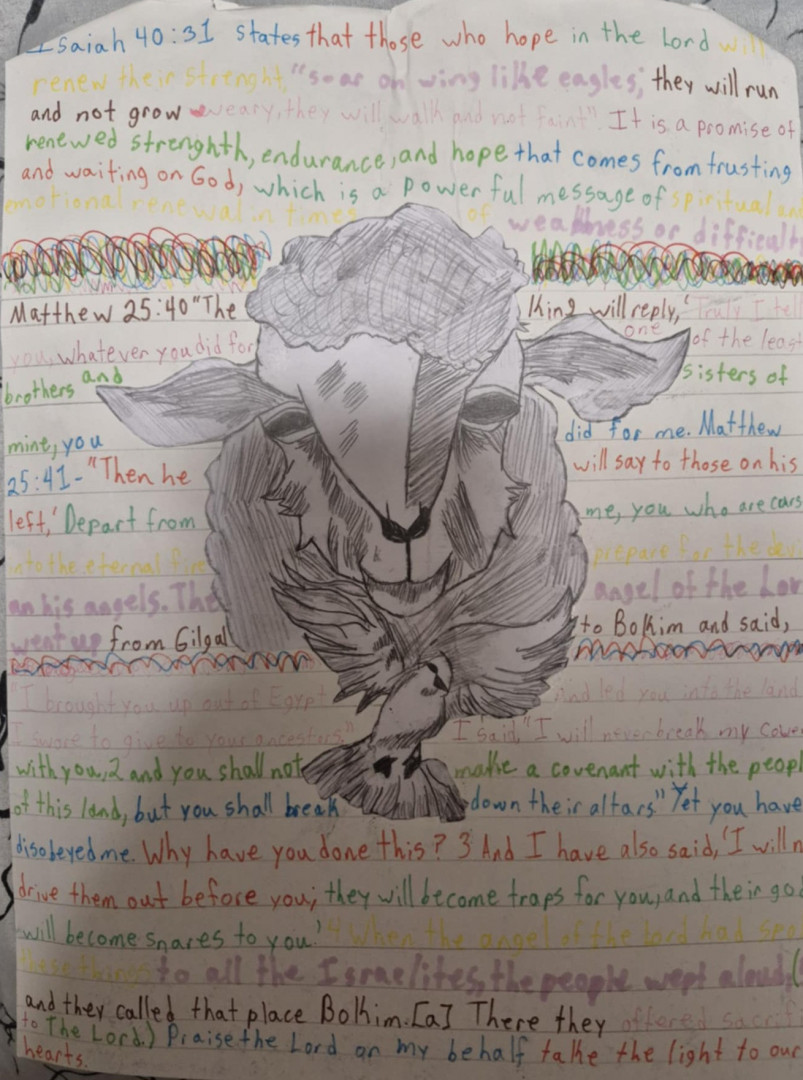 Isaiah 40:31 states that those who hope in the Lord will
renew their strenght, "soar on wing like eagles, they will run
and not grow weary, they will walk and not faint". It is a promise of
renewed strenghth, endurance, and hope that comes from trusting
and waiting on God, which is a powerful message of spiritual an
emotional renewal in times of weakness or difficult
Matthew 25:40 "The King will reply, 'Truly I tell
you, whatever you did for one of the least
brothers and sisters of
mine, you did for me. Matthew
25:41- "Then he will say to those on his
left, 'Depart from me, you who are curs
into the eternal fire prepare for the devi
an his angels. The angel of the Lor
went up from Gilgal to Bolkim and said,
"I brought you up out of Egypt and led you into the land
I swore to give to your ancestors." I said, "I will never break my cove
with you, 2 and you shall not make a covenant with the peopl
of this land, but you shall break down their altars." Yet you have
disobeyed me. Why have you done this? 3 And I have also said, 'I will n
drive them out before you; they will become traps for you, and their god
will become snares to you.' 4 When the angel of the lord had spo
these things to all the Israelites, the people wept aloud, (
and they called that place Bolkim.[a] There they offered sacrif
to The Lord.) Praise the Lord on my behalf take the light to our
hearts.